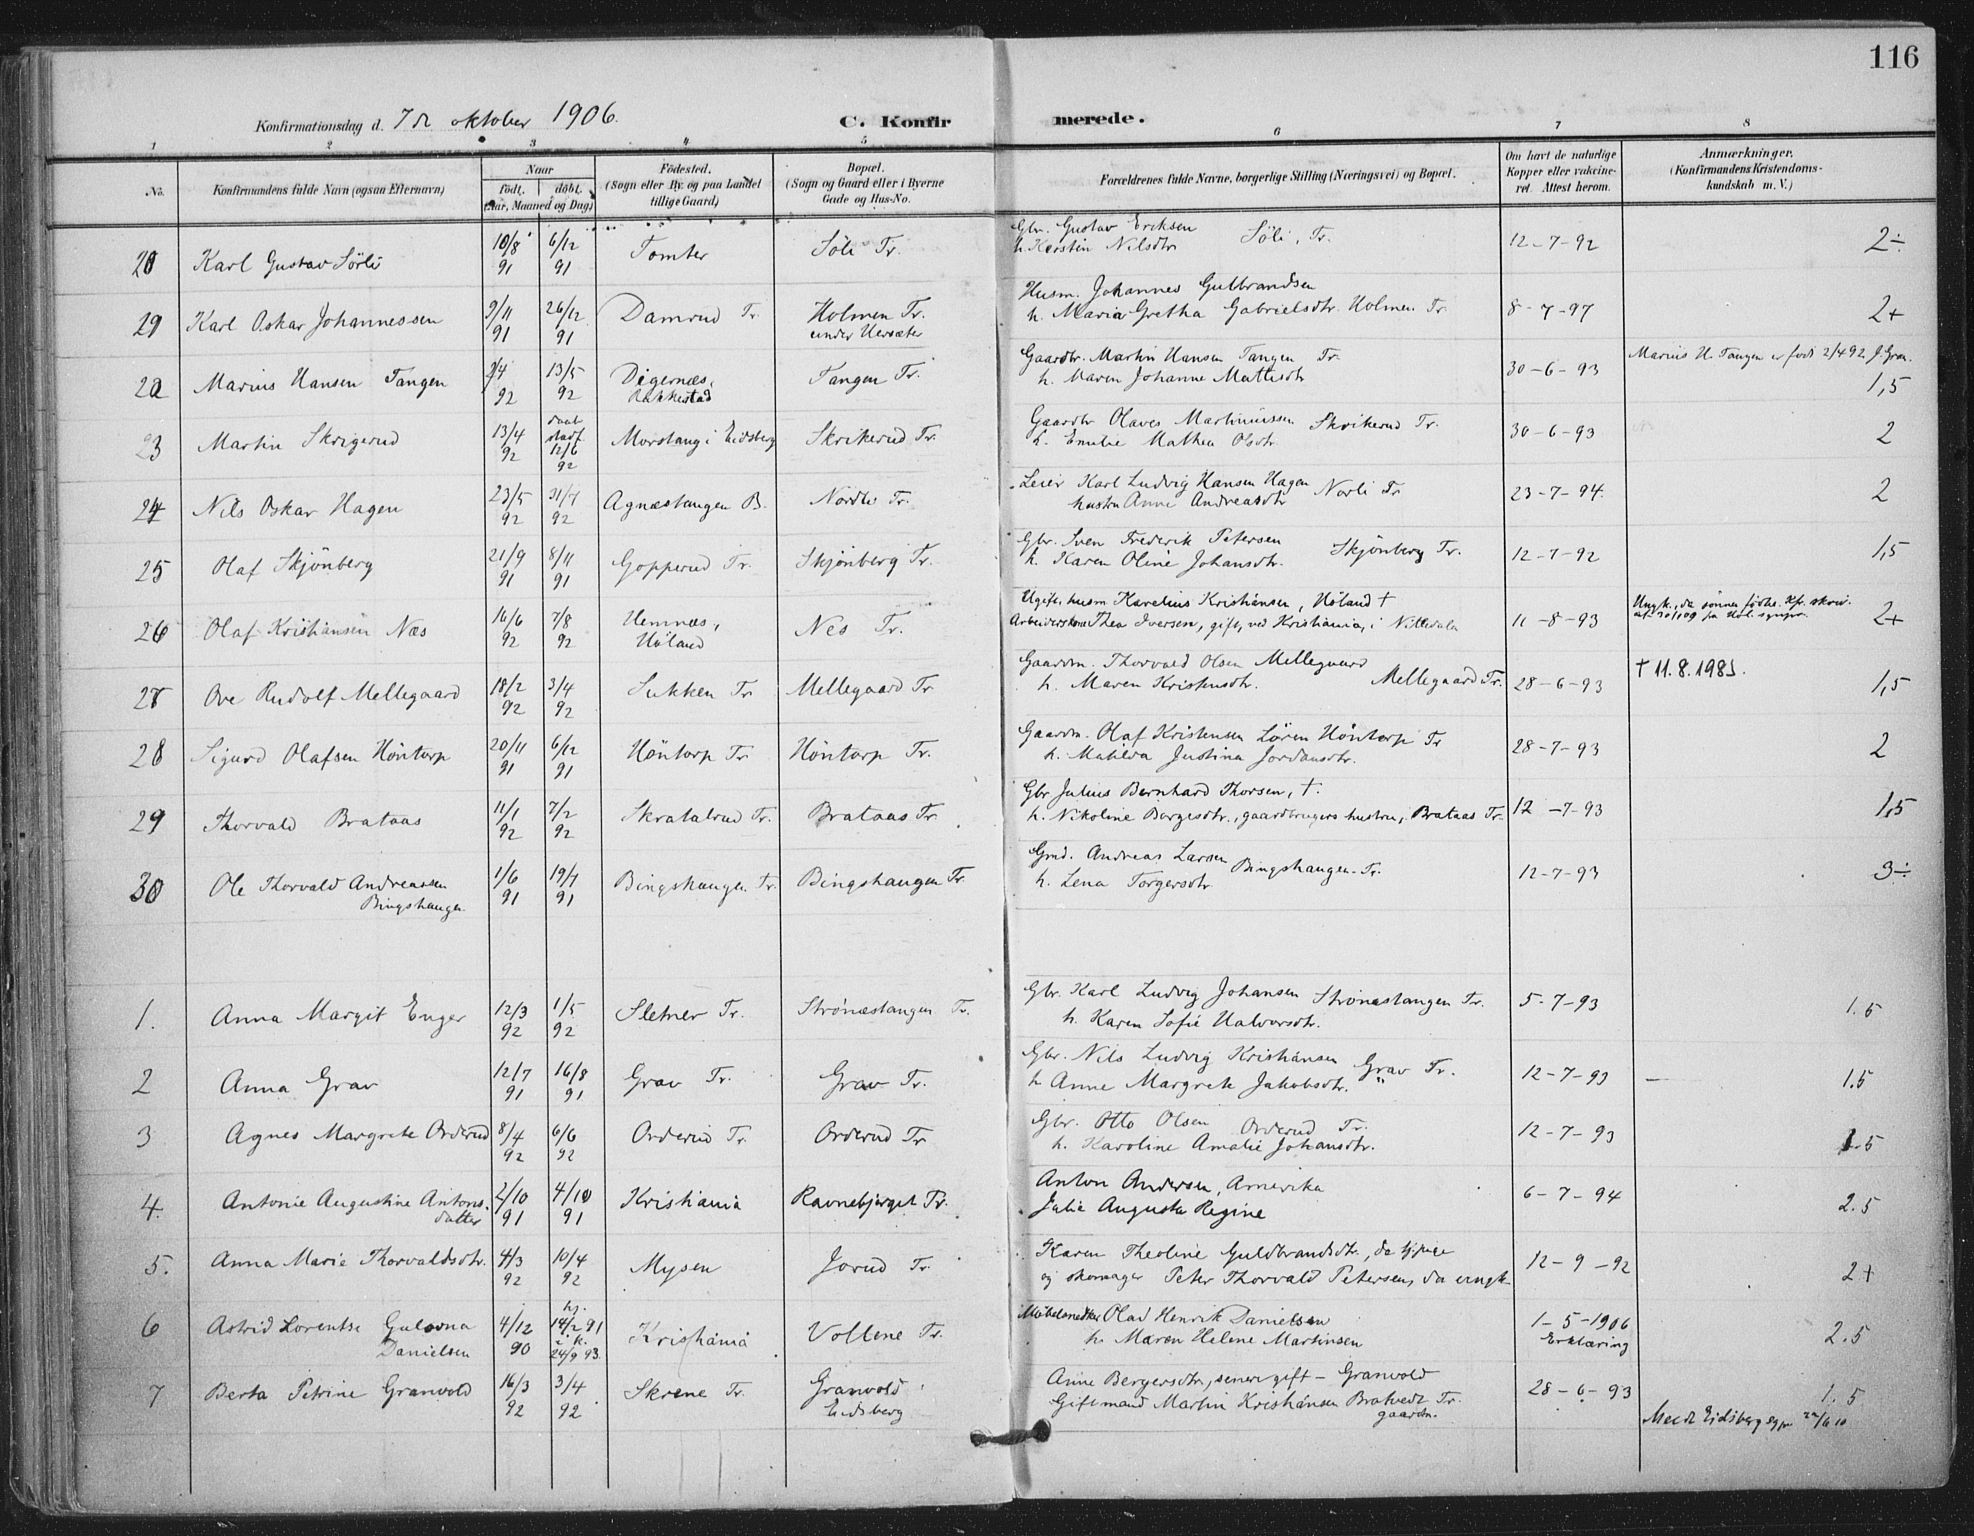 116
Konfirmationsdag d. 7de oktober 1906.
C. Konfirmerede.
1 2 3 4 5 6 7 8
No. Konfirmandens fulde Navn (ogsaa Efternavn) Naar födt. döbt. (Aar, Maaned og Dag) Födested. (Sogn eller By, og paa Landet tillige Gaard) Bopæl. (Sogn og Gaard eller i Byerne Gade og Hus-No. Forældrenes fulde Navne, borgerlige Stilling (Næringsvei) og Bopæl. Om havt de naturlige Kopper eller vaccineret. Attest herom. Anmærkninger. (Konfirmandens Kristendomskundskab m. V.)
20 Karl Gustav Sörli 10/8 91 6/12 91 Tomter Söli Tr. Gbr. Gustav Eriksen
h. Kerstin Nilsdtr Söli, Tr. 12-7-92 2÷
29 Karl Oskar Johannessen 9/11 91 26/12 91 Damrud Tr. Holmen Tr.
under Hersæter
Husm. Johannes Gulbrandsen
h. Maria Gretha Gabrielsdtr. Holmen Tr. 8-7-97 2+
Marius Hansen Tangen 2/4 92 13/5 92 Digernæs,
Rakkestad Tangen Tr.
Gaardbr. Martin Hansen Tangen Tr.
h. Maren Johanne Mattisdtr 30-6-93 Marius H. Tangen er födt 2/4 92 J. Gran.
1,5
23 Martin Skrigerud 13/4 92 daab
stadf.
12/6
92 Morstang i Eidsberg Skrikerud Tr.
Gaardbr Olaves Martinussen Skrikerud Tr.
h. Emilie Mathea Olsdtr. 30-6-93 2
24 Nils Oskar Hagen 23/5 92 31/7 92 Agnæstangen B. Nordli Tr.
Leier Karl Ludvig Hansen Hagen Norli Tr
hustru Anne Andreasdtr 23-7-94. 2
25 Olaf Skjönberg 21/9 91 8/11 91 Gopperud Tr. Skjönberg Tr.
Gbr. Sven Frederik Petersen Skjönberg Tr.
h. Karen Oline Johansdtr. 12-7-92 1,5
26 Olaf Kristiansen Næs 16/6 92 7/8 92 Hemnæs,
Höland Nes Tr.
Ugift. husm Karelius Kristiansen, Höland †
Thea Iversen, gift, ved Kristiania, i Nittedalen 11-8-93 2+
27 Ove Rudolf Mellegaard 18/2 92 3/4 92 Sukken Tr Mellegaard Tr
Gaardm. Thorvald Olsen Mellegaard
h. Maren Kristensdtr. Mellegaard Tr. 28-6-93 † 11.8.1983.
1,5
28 Sigurd Olafsen Höntorp 20/11 91 6/12 91 Höntorp Tr Höntorp Tr.
Gaardm. Olaf Kristensen Lören Höntorp Tr
h. Matilda Justina Jordansdtr. 28-7-93 2
29 Thorvald Brataas 11/1 92 7/2 92 Skratalrud Tr. Brataas Tr.
Gbr Julius Bernhard Thorsen, †.
h. Nikoline Borgesdtr., gaardbrugers hustru, Brataas Tr. 12-7-93 1,5
30 Ole Thorvald Andreassen
Bingshaugen 1/6 91 19/7 91 Bingshaugen Tr. Bingshaugen Tr.
Grnd. Andreas Larsen Bingshaugen Tr.
h. Lena Torgersdtr. 12-7-93 3÷
1. Anna Margit Enger 12/3 92 1/5 92 Sletner Tr. Strönæstangen Tr.
Gbr. Karl Ludvig Johansen Strönæstangen Tr.
h. Karen Sofie Halvorsdtr. 5-7-93 1.5
2 Anna Grav 12/7 91 16/8 91 Grav Tr. Grav Tr.
Gbr. Nils Ludvig Kristiansen Grav Tr.
h Anne Margrete Jakobsdtr. " 12-7-93 — 1.5
3 Agnes Margrete Orderud 8/4 92 6/6 92 Orderud Tr. Orderud Tr
Gbr. Otto Olsen Orderud Tr.
h. Karoline Amalie Johansdtr. 12-7-93 1.5
4. Antonie Augustine Antons-
datter 2/10 91 4/10 91 Kristiania Ravnebjerget Tr.
Anton Andersen, Amerika
Julie Augusta Regine 6-7-94 2.5
5. Anna Marie Thorvaldsdtr. 4/3 92 10/4 92 Mysen Jorud Tr
Karen Theoline Guldbrandsdtr., da tjpige
og skomager Peter Thorvald Petersen, da ungk. 12-9-92 2+
6 Astrid Lorentse Gulovna
Danielsen 4/12 90 hj.
14/2 91
i. k.
24/9 93. Kristiania Vollene Tr.
Möbelsnedker Olad Henrik Danielsen
h. Maren Helene Martinsen 1-5-1906
Erklæring 2.5
7 Berta Petrine Granvold 16/3 92 3/4 92 Skrene Tr. Granvold
Eidsberg
Anne Bergersdtr., senere gift – Granvold
Gift mand Martin Kristiansen Bratvedt Tr.
gaardm. 28-6-93 1.5
Meldt Eidsberg